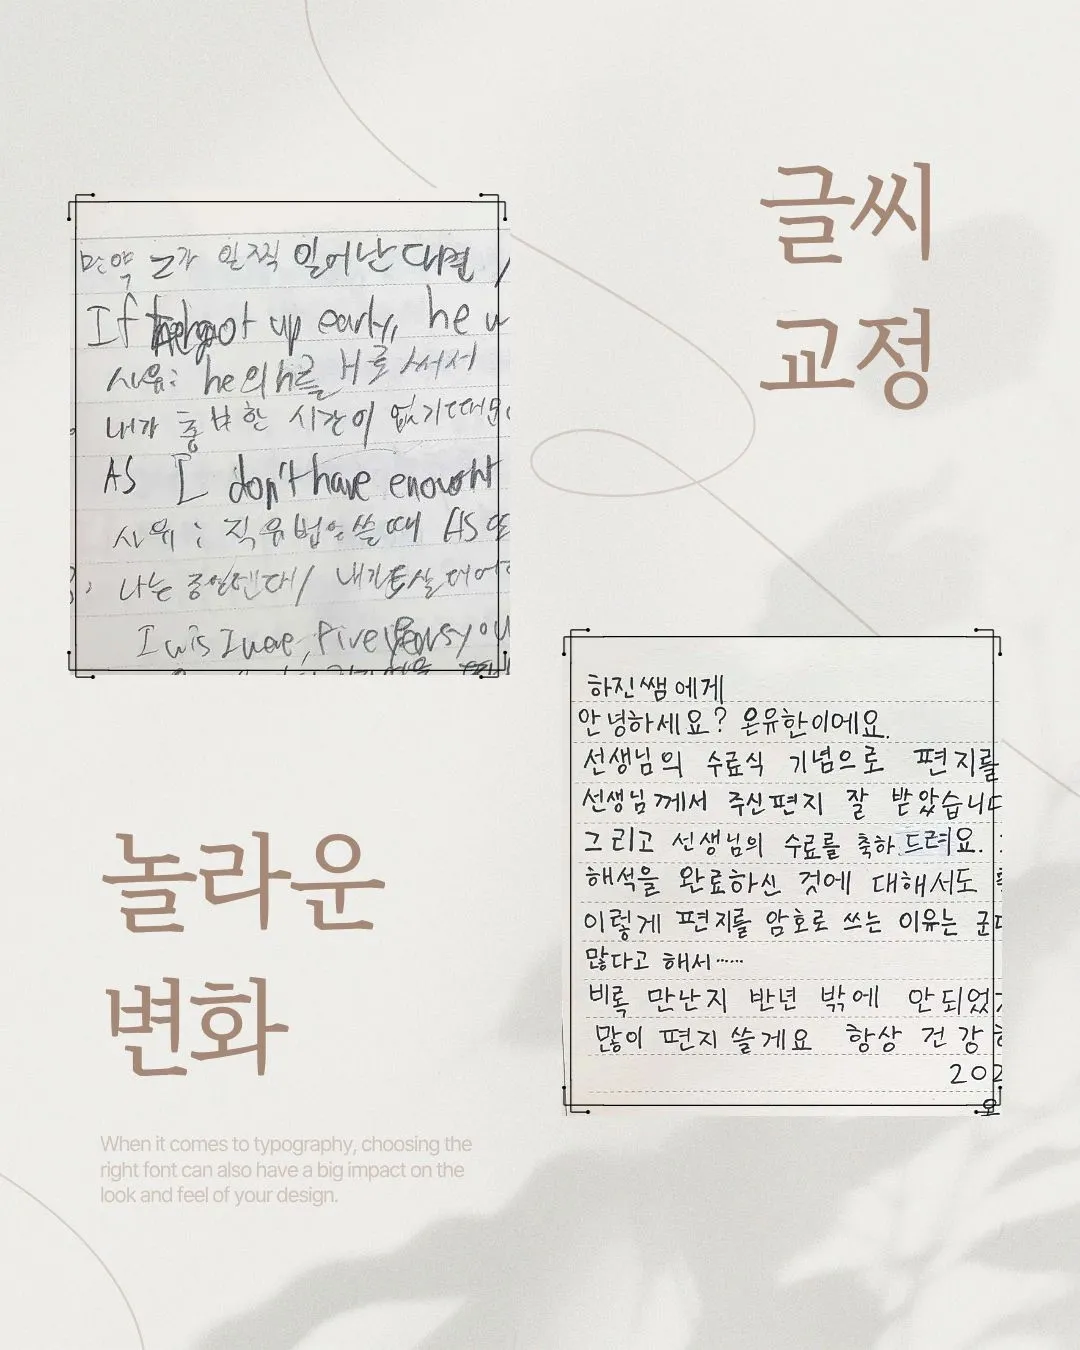 글씨
교정
만약 그가 일찍 일어난다면
If got up early, he w
사유: he의 h를 H로 써서
내가 충분한 시간이 없기때문
AS I don't have enought
사유 : 직유법은쓸때 AS
나는 내가
I wis I were, five years you
하진쌤에게
안녕하세요? 온유한이에요.
선생님의 수료식 기념으로 편지를
선생님께서 주신편지 잘 받았습니다
그리고 선생님의 수료를 축하드려요.
해석을 완료하신 것에 대해서도
이렇게 편지를 암호로 쓰는 이유는 군대
많다고 해서……
비록 만난지 반년 밖에 안되었
많이 편지 쓸게요 항상 건강
202
놀라운
변화
When it comes to typography, choosing the
right font can also have a big impact on the
look and feel of your design.